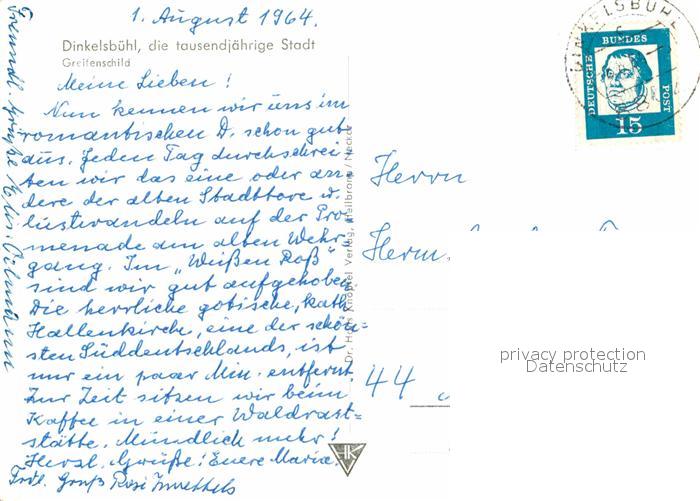 1. August 1964.
Dinkelsbühl, die tausendjährige Stadt
Greifenschild
Meine Lieben!
Nun kennen wir uns im
romantischen D. schon gut
aus. Jeden Tag durchschrei-
ten wir das eine oder an
dere der alten Stadttore u.
lustwandeln auf der Pro
menade am alten Wehr-
gang. Im „Weißen Roß"
sind wir gut aufgehoben
Die herrliche gotische, kath
Hallenkirche, eine der schön-
sten Süddeutschlands, ist
nur ein paar Min. entfernt.
Zur Zeit sitzen wir beim
Kaffee in einer Waldrast-
stätte. Mündlich mehr!
Herzl. Grüße! Euere Maria.
Frdl. Gruß Rosi
Freundl. Grüße
Dr. Hans Knoblel Verlag, Heilbronn / Neckar
HK
DINKELSBÜHL
DEUTSCHE BUNDES POST
15
Herrn
Herm.
44
privacy protection
Datenschutz